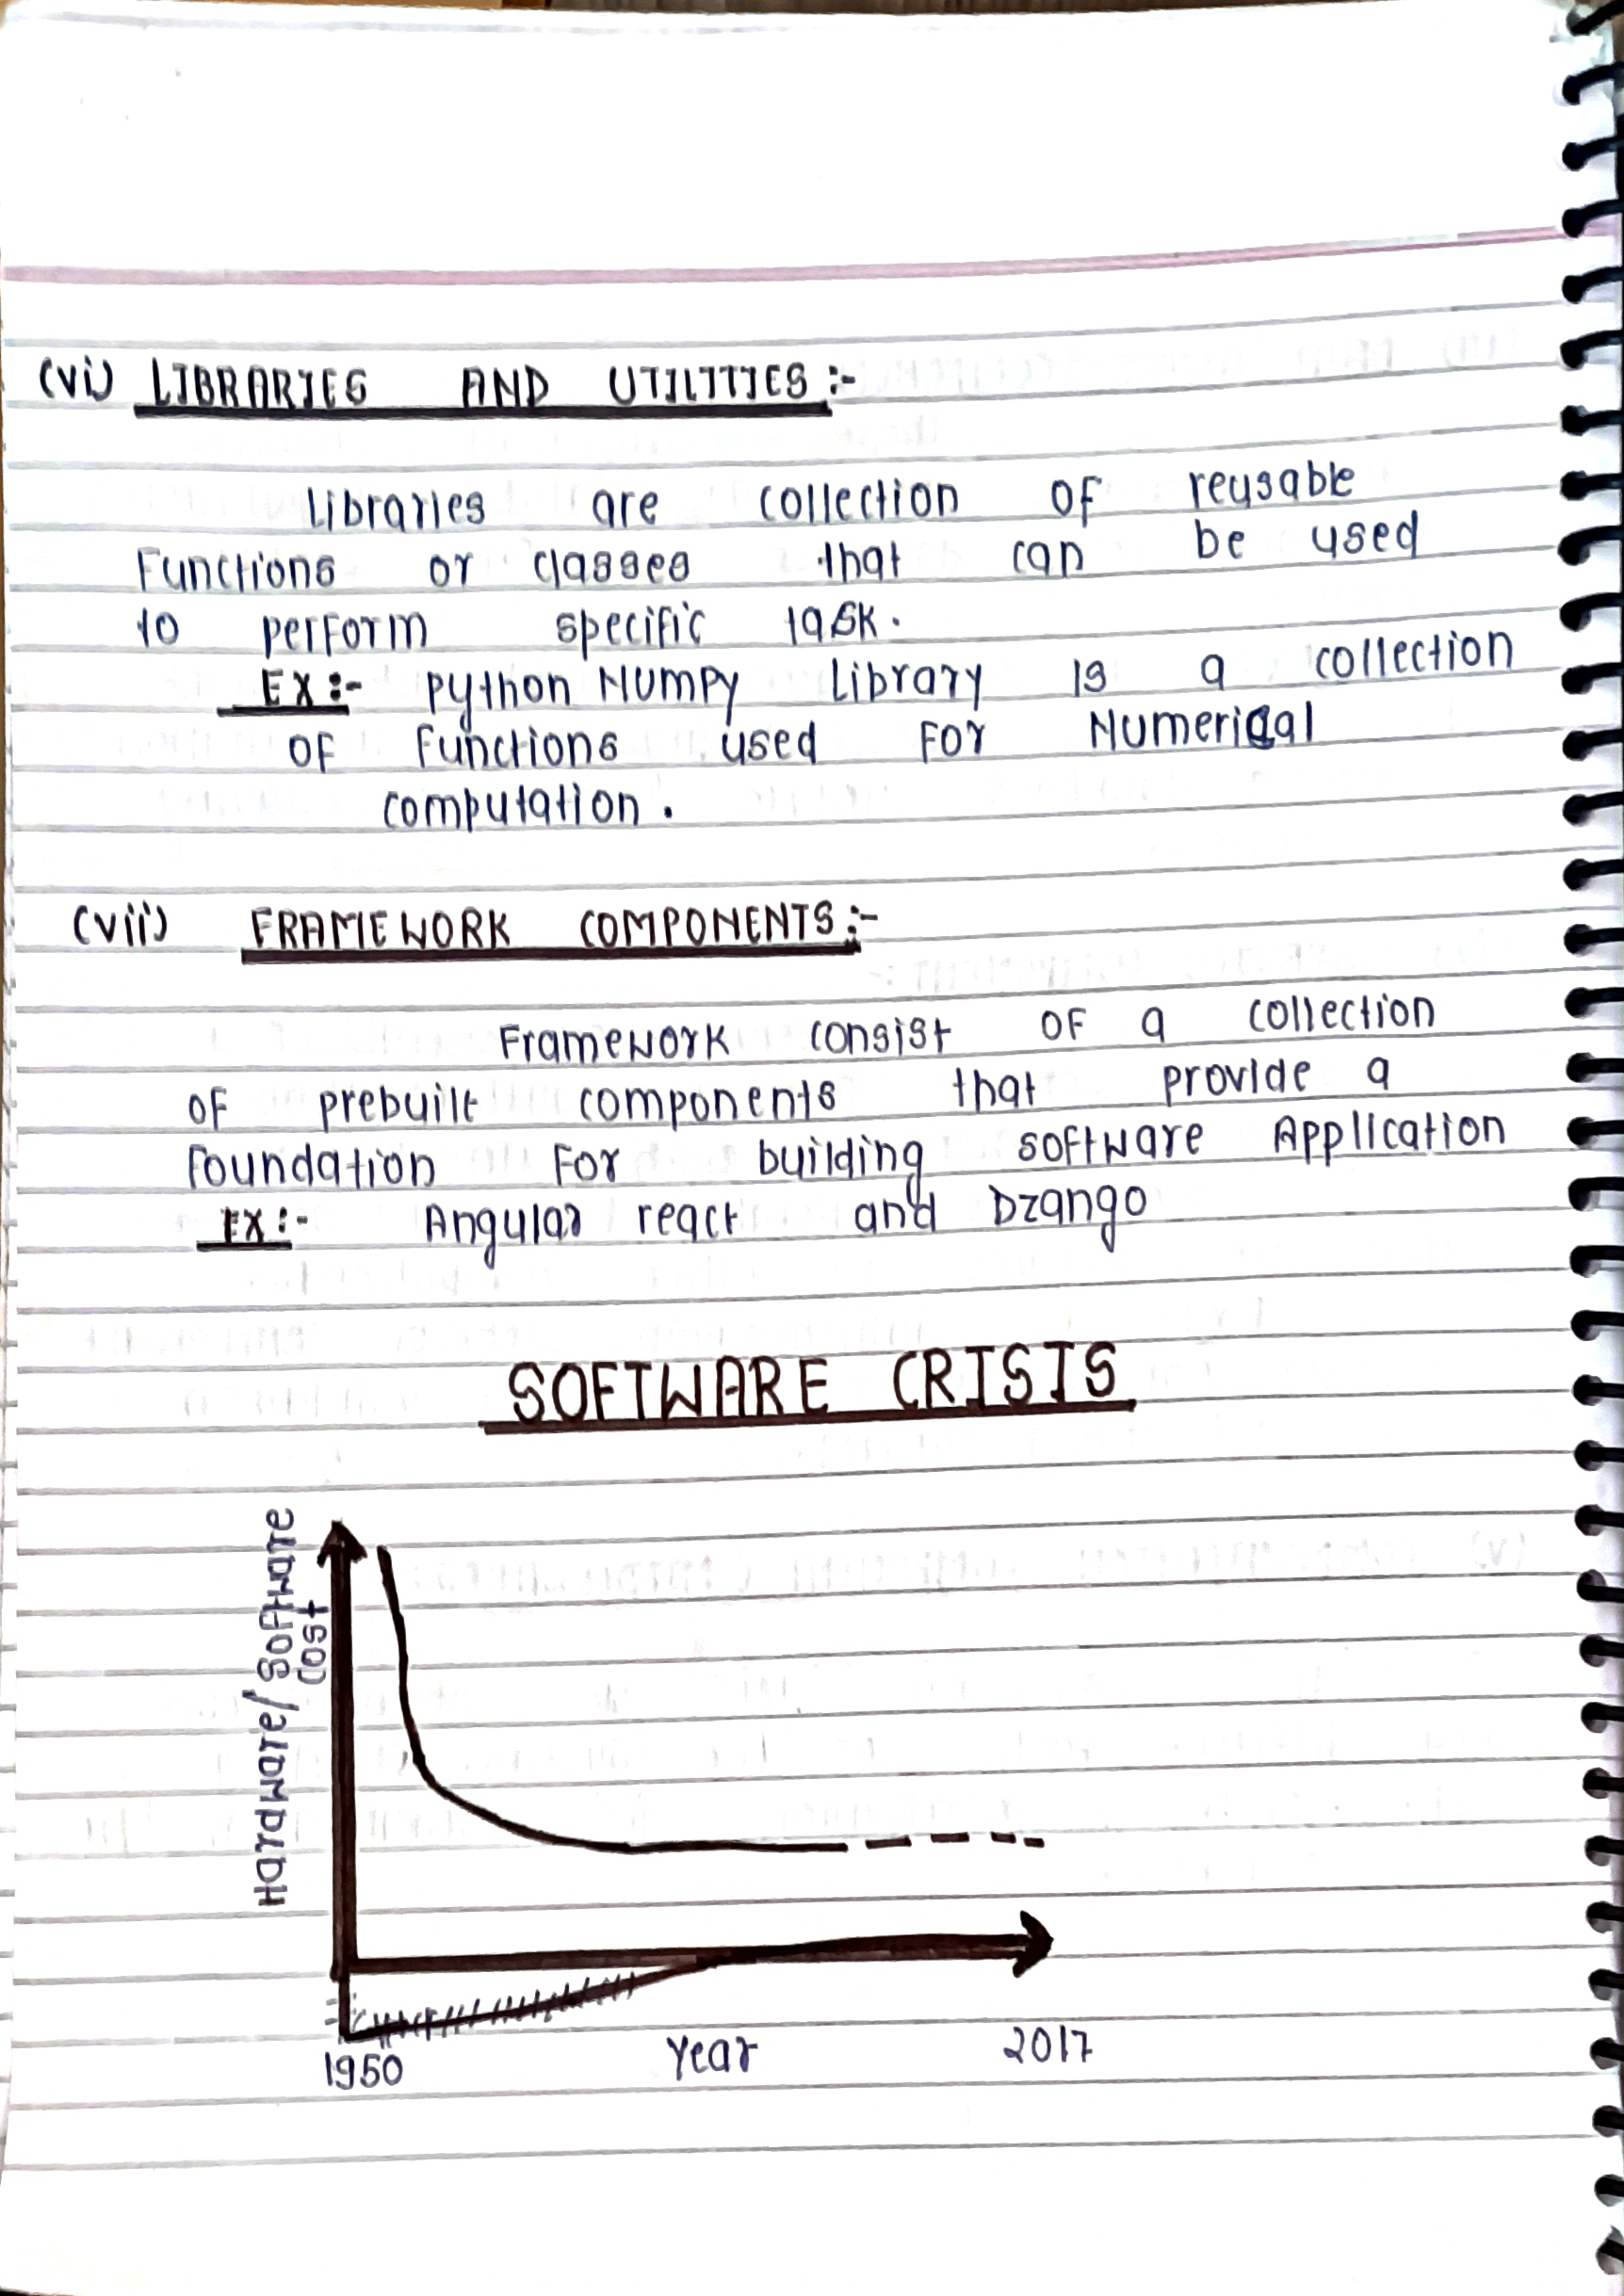 (vi) LIBRARIES AND UTILITIES :-
Libraries are collection of reusable
Functions or classes that can be used
to perform specific task.
EX :- Python Numpy Library is a collection
of Functions used For Numerical
computation.
(vii) FRAMEWORK COMPONENTS :-
Framework consist of a collection
of prebuilt components that provide a
foundation For building software Application
EX :- Angular react and Dzango
SOFTWARE CRISIS
Hardware/Software
Cost
1950 Year 2017